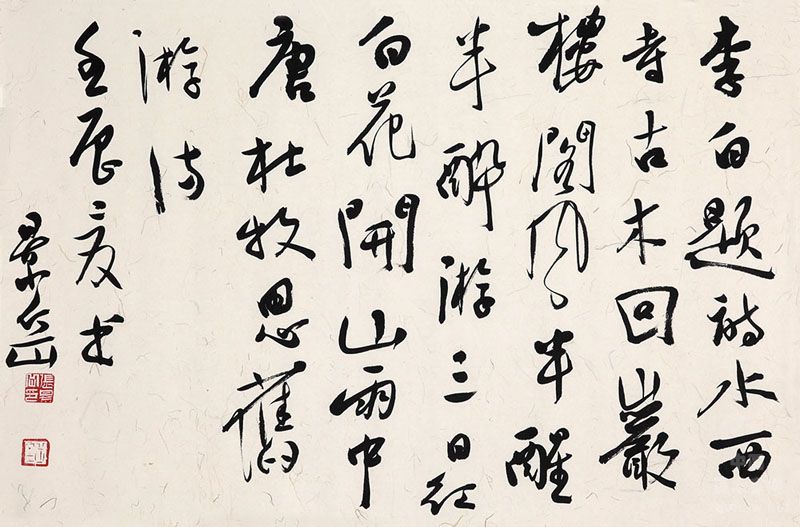 李白題詩水西
寺古木回巖
樓閣風半醒
半醉游三日红
白花開山雨中
唐杜牧思舊
游诗
壬辰夏书
景岳